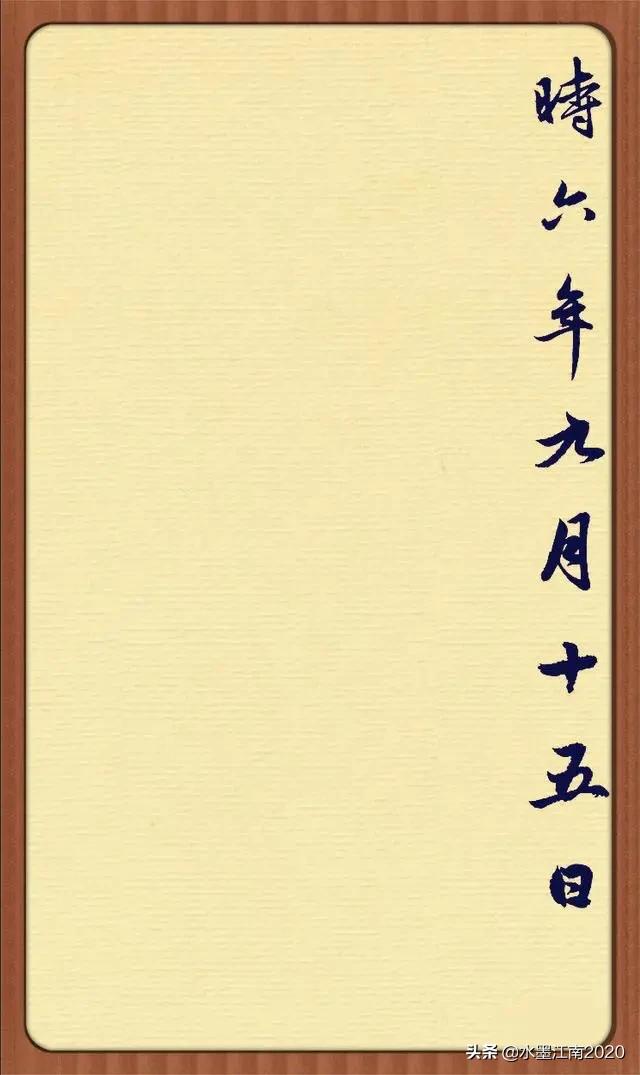 時六年九月十五日
头条 @水墨江南2020